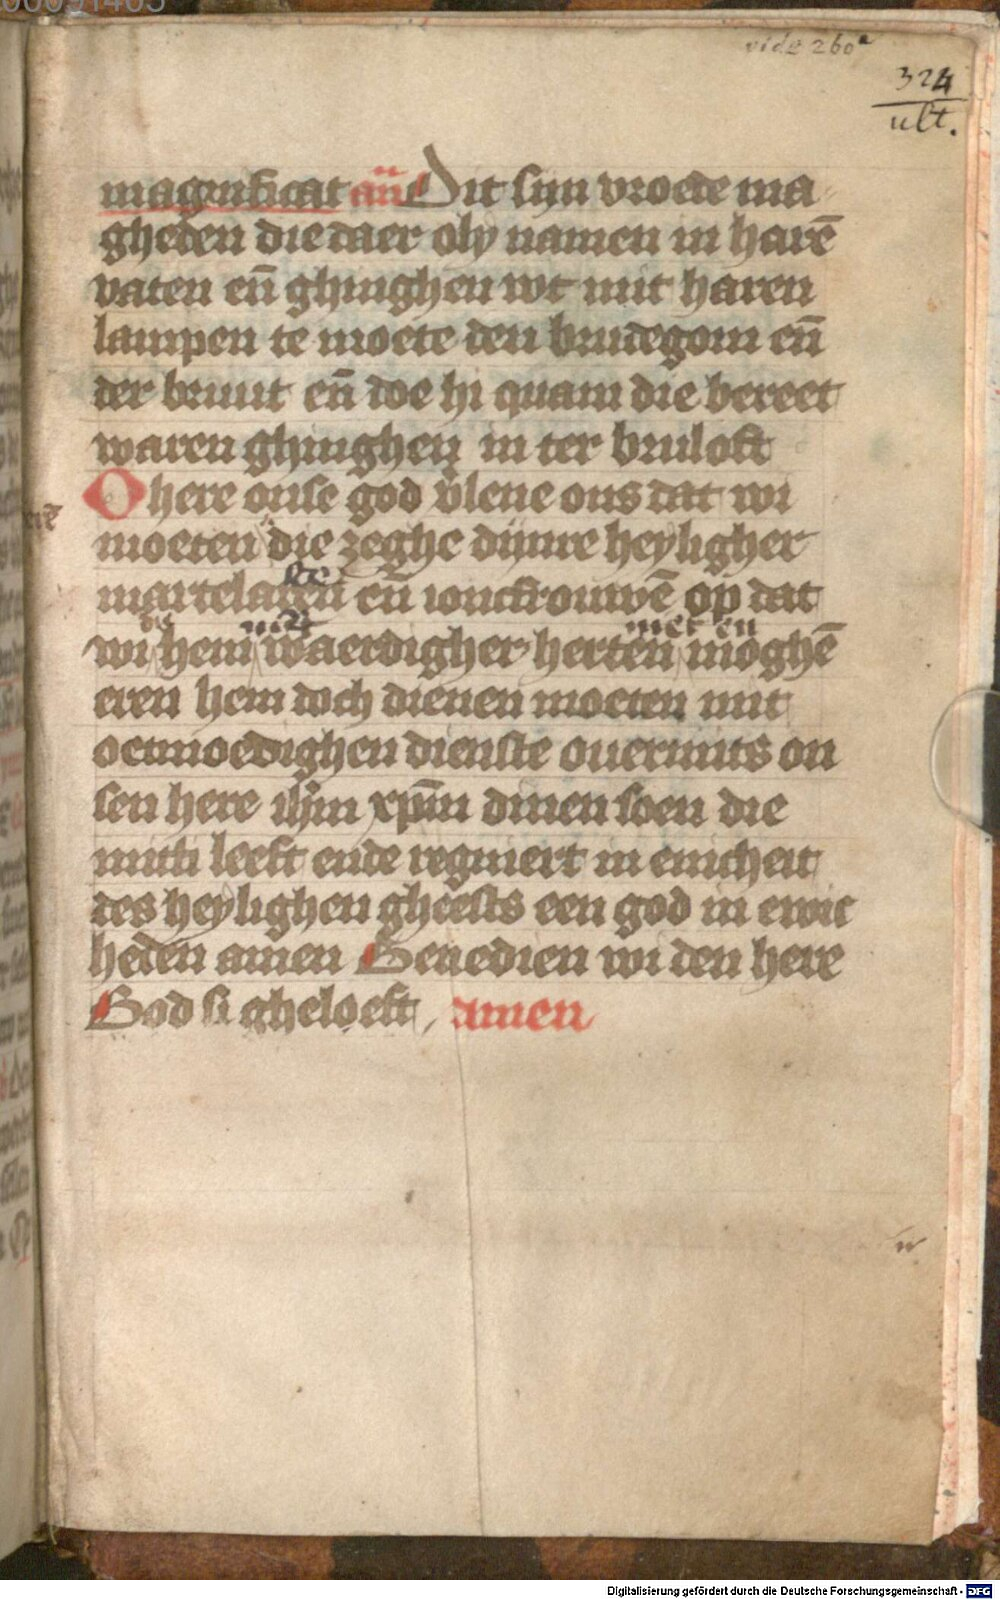 vide 260a
324
ult.
magnificat an̄ Dit sijn vroede ma
gheden die daer oly namen in harē
vaten en̄ ghinghen wt mit haren
lampen te moete den brudegom en̄
der bruut en̄ doe hi quam die bereet
waren ghinghen in ter bruloft
O here onse god v̄lene ons dat wi
moeten die zeghe dijnre heyligher
martelaren en̄ ioncfrouwē op dat
die met met en
wi hem waerdigher herten moghē
eren hem doch dienen moeten mit
oetmoedighen dienste ouermits on
sen here ih̄m xp̄m dinen soen die
mitti leeft ende regniert in enicheit
des heylighen gheests een god in ewic
heden amen Benedien wi den here
God si gheloeft, amen
Digitalisierung gefördert durch die Deutsche Forschungsgemeinschaft - DFG